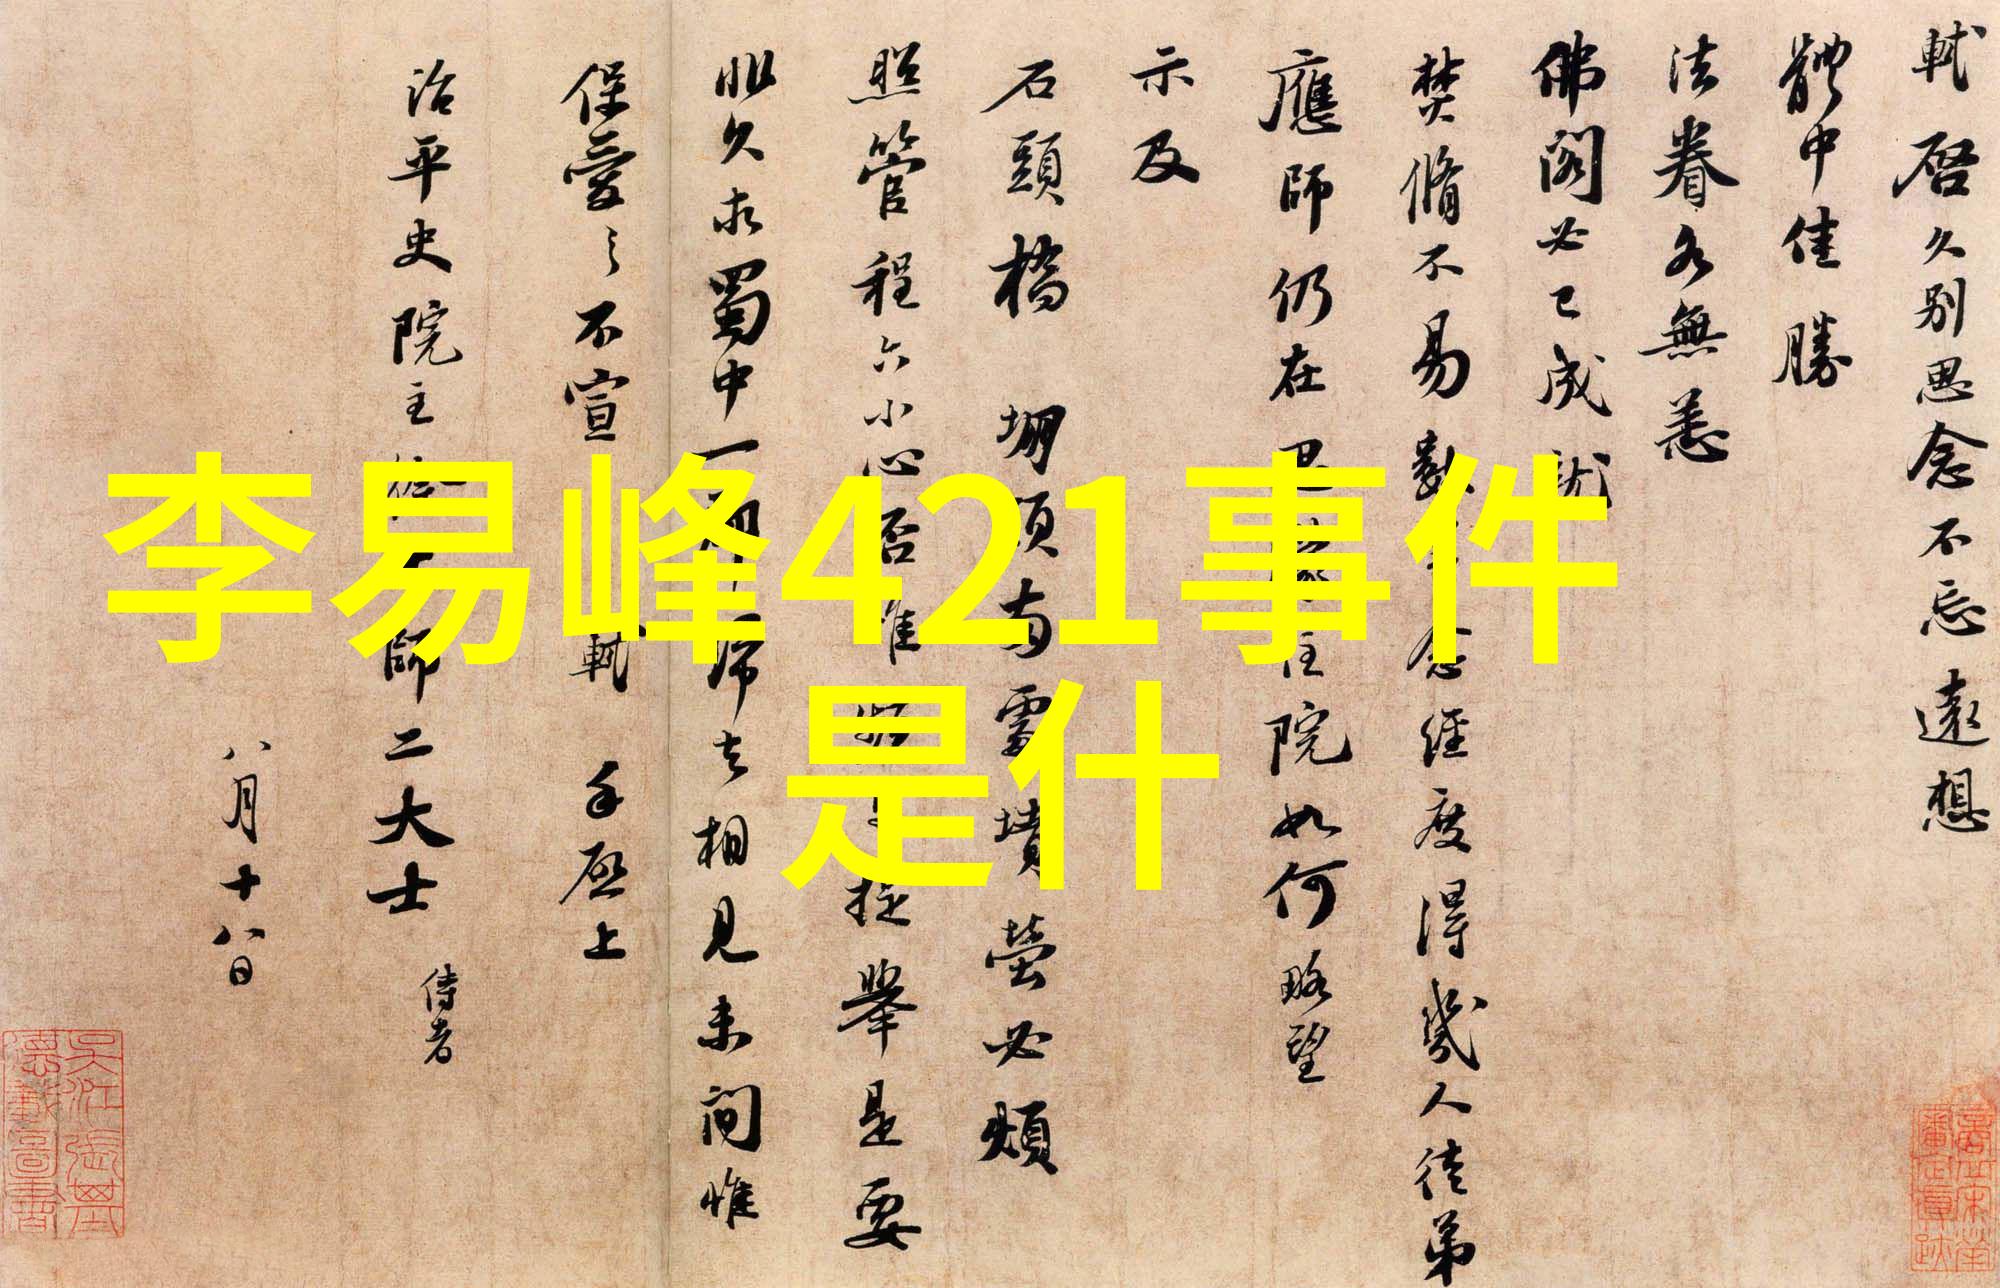 軾啓久别思念不忘遠想
體中佳勝
法眷各無恙
佛閣必已成就
焚脩不易數年念經度得幾人徒弟
應師仍在思濛住院如何略望
示及
石頭橋堋頭兩處墳塋必煩
照管程六小心否惟頻與提舉是要
非久求蜀中一郡歸去相見未間惟
保愛之不宣軾手啓上
治平史院主徐大師二大士侍者
八月十八日
李易峰421事件
是什